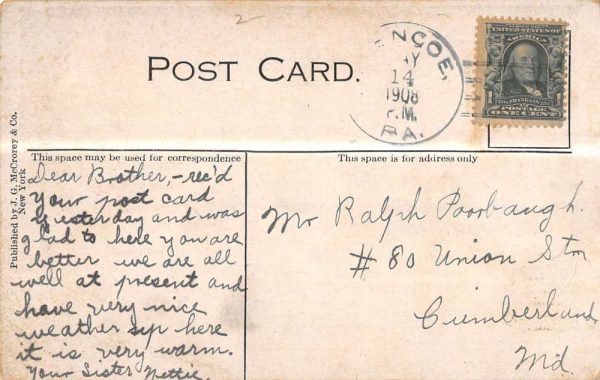 2
POST CARD.
ENCOE,
MAY
14
1908
P.M.
PA.
UNITED STATES OF
AMERICA
1 FRANKLIN 1
POSTAGE
ONE CENT
Published by J. G. McCrorey & Co.
New York
This space may be used for correspondence
Dear Brother,-rec'd
your post card
yesterday and was
glad to here you are
better we are all
well at present and
have very nice
weather up here
it is very warm.
Your Sister Nettie.
This space is for address only
Mr Ralph Poorbaugh.
# 80 Union Str
Cumberland
Md.